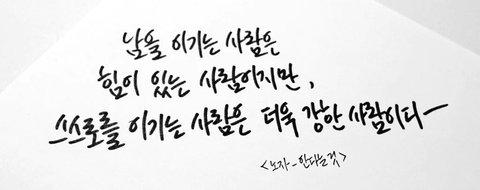 남을 이기는 사람은
힘이 있는 사람이지만,
스스로를 이기는 사람은 더욱 강한 사람이다—
<노자-안다는것>